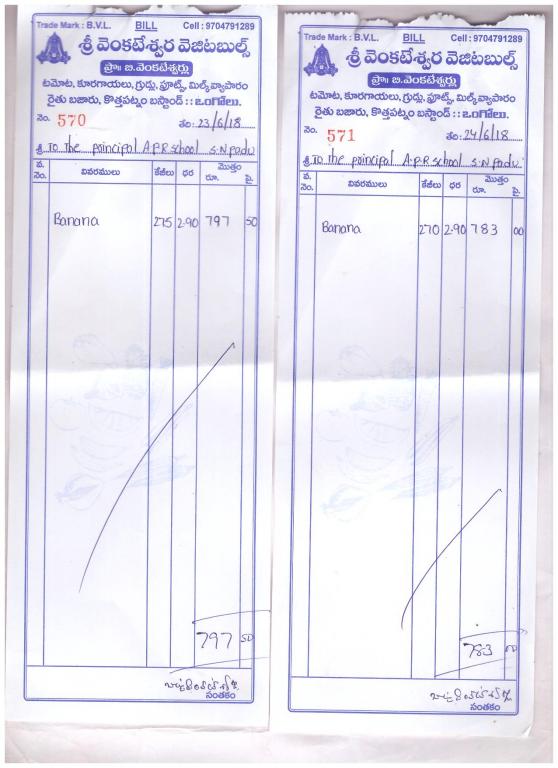 Trade Mark : B.V.L. BILL Cell : 9704791289
శ్రీ వెంకటేశ్వర వెజిటబుల్స్
ప్రొ॥ బి.వెంకటేశ్వర్లు
టమోట, కూరగాయలు, గ్రుడ్లు, ఫ్రూట్స్, మిల్క్ వ్యాపారం
రైతు బజారు, కొత్తపట్నం బస్టాండ్ :: ఒంగోలు.
నెం. 570 తేది: 23/6/18
శ్రీ To the principal A.P.R school S.N padu
వ. నెం. వివరములు కేజీలు ధర మొత్తం రూ. పై.
Banana 275 2-90 797 50
797 50
సంతకం
Trade Mark : B.V.L. BILL Cell : 9704791289
శ్రీ వెంకటేశ్వర వెజిటబుల్స్
ప్రొ॥ బి.వెంకటేశ్వర్లు
టమోట, కూరగాయలు, గ్రుడ్లు, ఫ్రూట్స్, మిల్క్ వ్యాపారం
రైతు బజారు, కొత్తపట్నం బస్టాండ్ :: ఒంగోలు.
నెం. 571 తేది: 24/6/18
శ్రీ To the principal A.P.R school S.N padu
వ. నెం. వివరములు కేజీలు ధర మొత్తం రూ. పై.
Banana 270 2-90 783 00
783 00
సంతకం